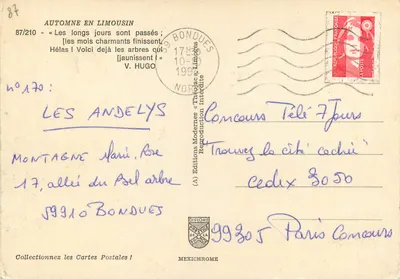 87
AUTOMNE EN LIMOUSIN
87/210 - « Les longs jours sont passés ;
[les mois charmants finissent.
Hélas ! Voici déjà les arbres qui
[jaunissent ! »
V. HUGO
59 BONDUES
17
10-
NORD
n° 170 :
LES ANDELYS
MONTAGNE Marie-Rose
17, allée du Bel arbre
59910 BONDUES
(A) Editions Modernes « Théojac » Limoges
Reproduction interdite
Concours Télé 7 Jours
"Trouvez la cité cachée"
Cedex 3050
99305 Paris Concours
Collectionnez les Cartes Postales !
MEXICHROME